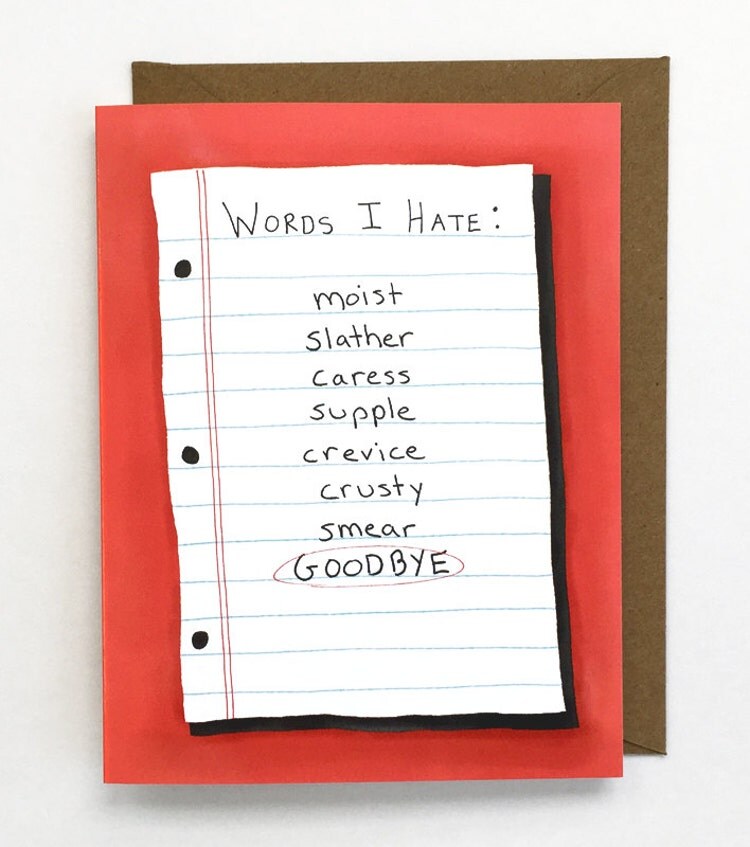 WORDS I HATE:
moist
slather
caress
supple
crevice
crusty
smear
GOODBYE